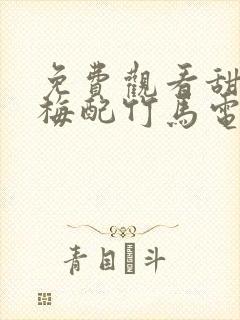 免費觀看甜
梅配竹馬電
青目斗